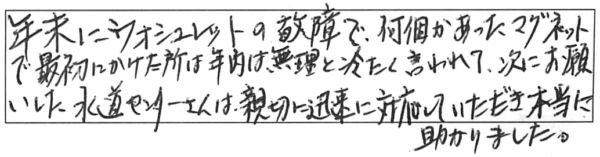 年末にウォシュレットの故障で、何個かあったマグネット
で最初にかけた所は年内は無理と冷たく言われて、次にお願
いした水道センターさんは、親切に迅速に対応していただき本当に
助かりました。